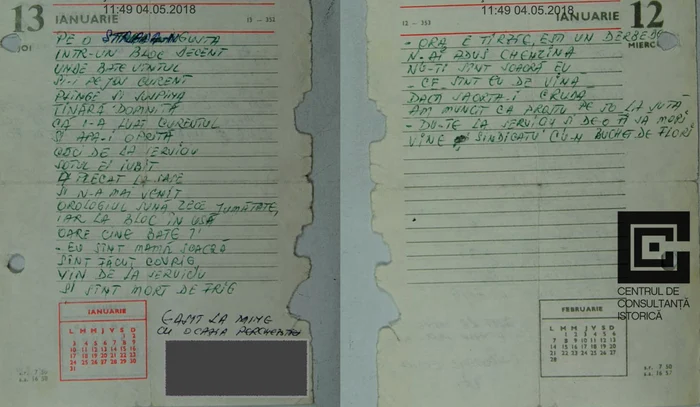 11:49 04.05.2018
13 IANUARIE
JOI
13 - 352
PE O STRADA INGUSTA
INTR-UN BLOC DECENT
UNDE BATE VINTUL
SI-I PE JOI CURENT
PLINGE SI SUSPINA
TINĂRA DOMNITĂ
CĂ I-A LUAT CURENTUL
SI APA-I OPRITĂ
DE LA SERVICIU
SOTUL EI IUBIT
A PLECAT LA SASE
SI N-A MAI VENIT
OROLOGIUL SUNĂ ZECE JUMĂTATE,
IAR LA BLOC ÎN USĂ
OARE CINE BATE ?!
- EU SÎNT MAMĂ SOACRĂ
SÎNT FĂCUT COVRIG
VIN DE LA SERVICIU
SI SÎNT MORT DE FRIG
IANUARIE
L M M J V S D
1 2
3 4 5 6 7 8 9
10 11 12 13 14 15 16
17 18 19 20 21 22 23
24 25 26 27 28 29 30
31
GASIT LA MINE
CU OCAZIA PERCHEZITIEI
11:49 04.05.2018
IANUARIE 12
MIERCURI
12 - 353
- ORA E TIRZIE, ESTI UN DERBEDEU
N-AI ADUS CHENZINA
NU-TI SÎNT SOACRĂ EU
- CE SÎNT EU DE VINĂ
DACĂ SOARTA-I CRUDĂ
AM MUNCIT CA PROSTU PE 50 LA SUTĂ
- DU-TE LA SERVICIU SI DE-O FI SĂ MORI
VINE SINDICATU CU-N BUCHET DE FLORI
FEBRUARIE
L M M J V S D
1 2 3 4 5 6
7 8 9 10 11 12 13
14 15 16 17 18 19 20
21 22 23 24 25 26 27
28
CENTRUL DE
CONSULTANȚĂ
ISTORICĂ